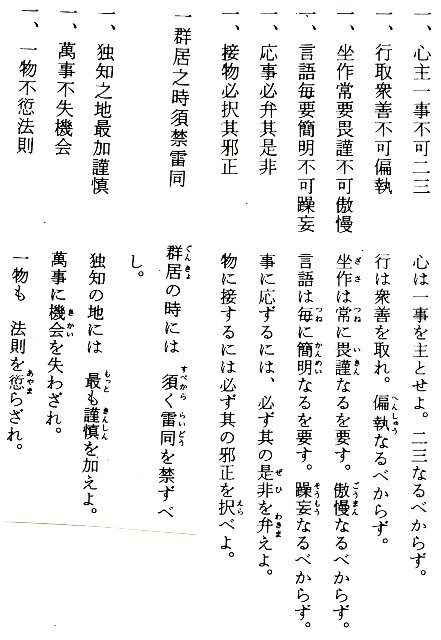 一、心主一事不可二三
一、行取衆善不可偏執
一、坐作常要畏謹不可傲慢
一、言語毎要簡明不可躁妄
一、応事必弁其是非
一、接物必択其邪正
一群居之時須禁雷同
一、独知之地最加謹慎
一、萬事不失機会
一、一物不愆法則
心は一事を主とせよ。二三なるべからず。
行は衆善を取れ。偏執なるべからず。
坐作は常に畏謹なるを要す。傲慢なるべからず。
言語は毎に簡明なるを要す。躁妄なるべからず。
事に応ずるには、必ず其の是非を弁えよ。
物に接するには必ず其の邪正を択べよ。
群居の時には 須く雷同を禁ずべ
し。
独知の地には 最も謹慎を加えよ。
萬事に機会を失わざれ。
一物も 法則を愆らざれ。